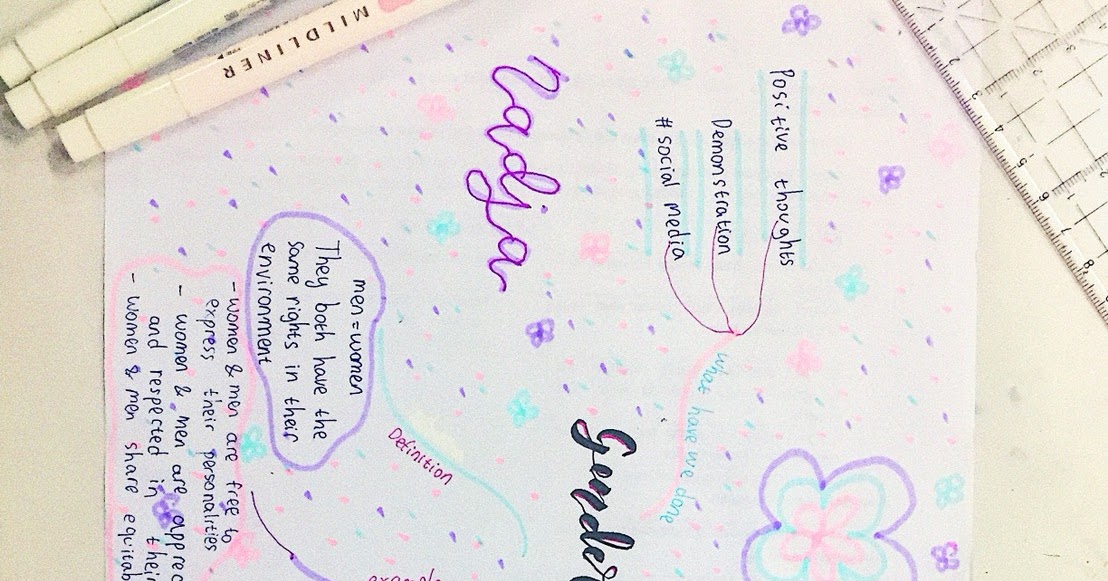 MILDLINER
Positive thoughts
Demonstration
# social media
what have we done
Nadja
Gender
Definition
men = women
They both have the
same rights in their
environment
- women & men are free to
express their personalities
- women & men are
and respected in their
- women & men share